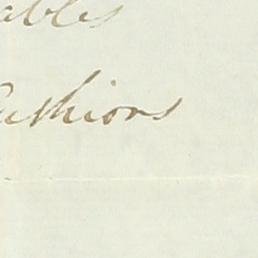 ables
ushions